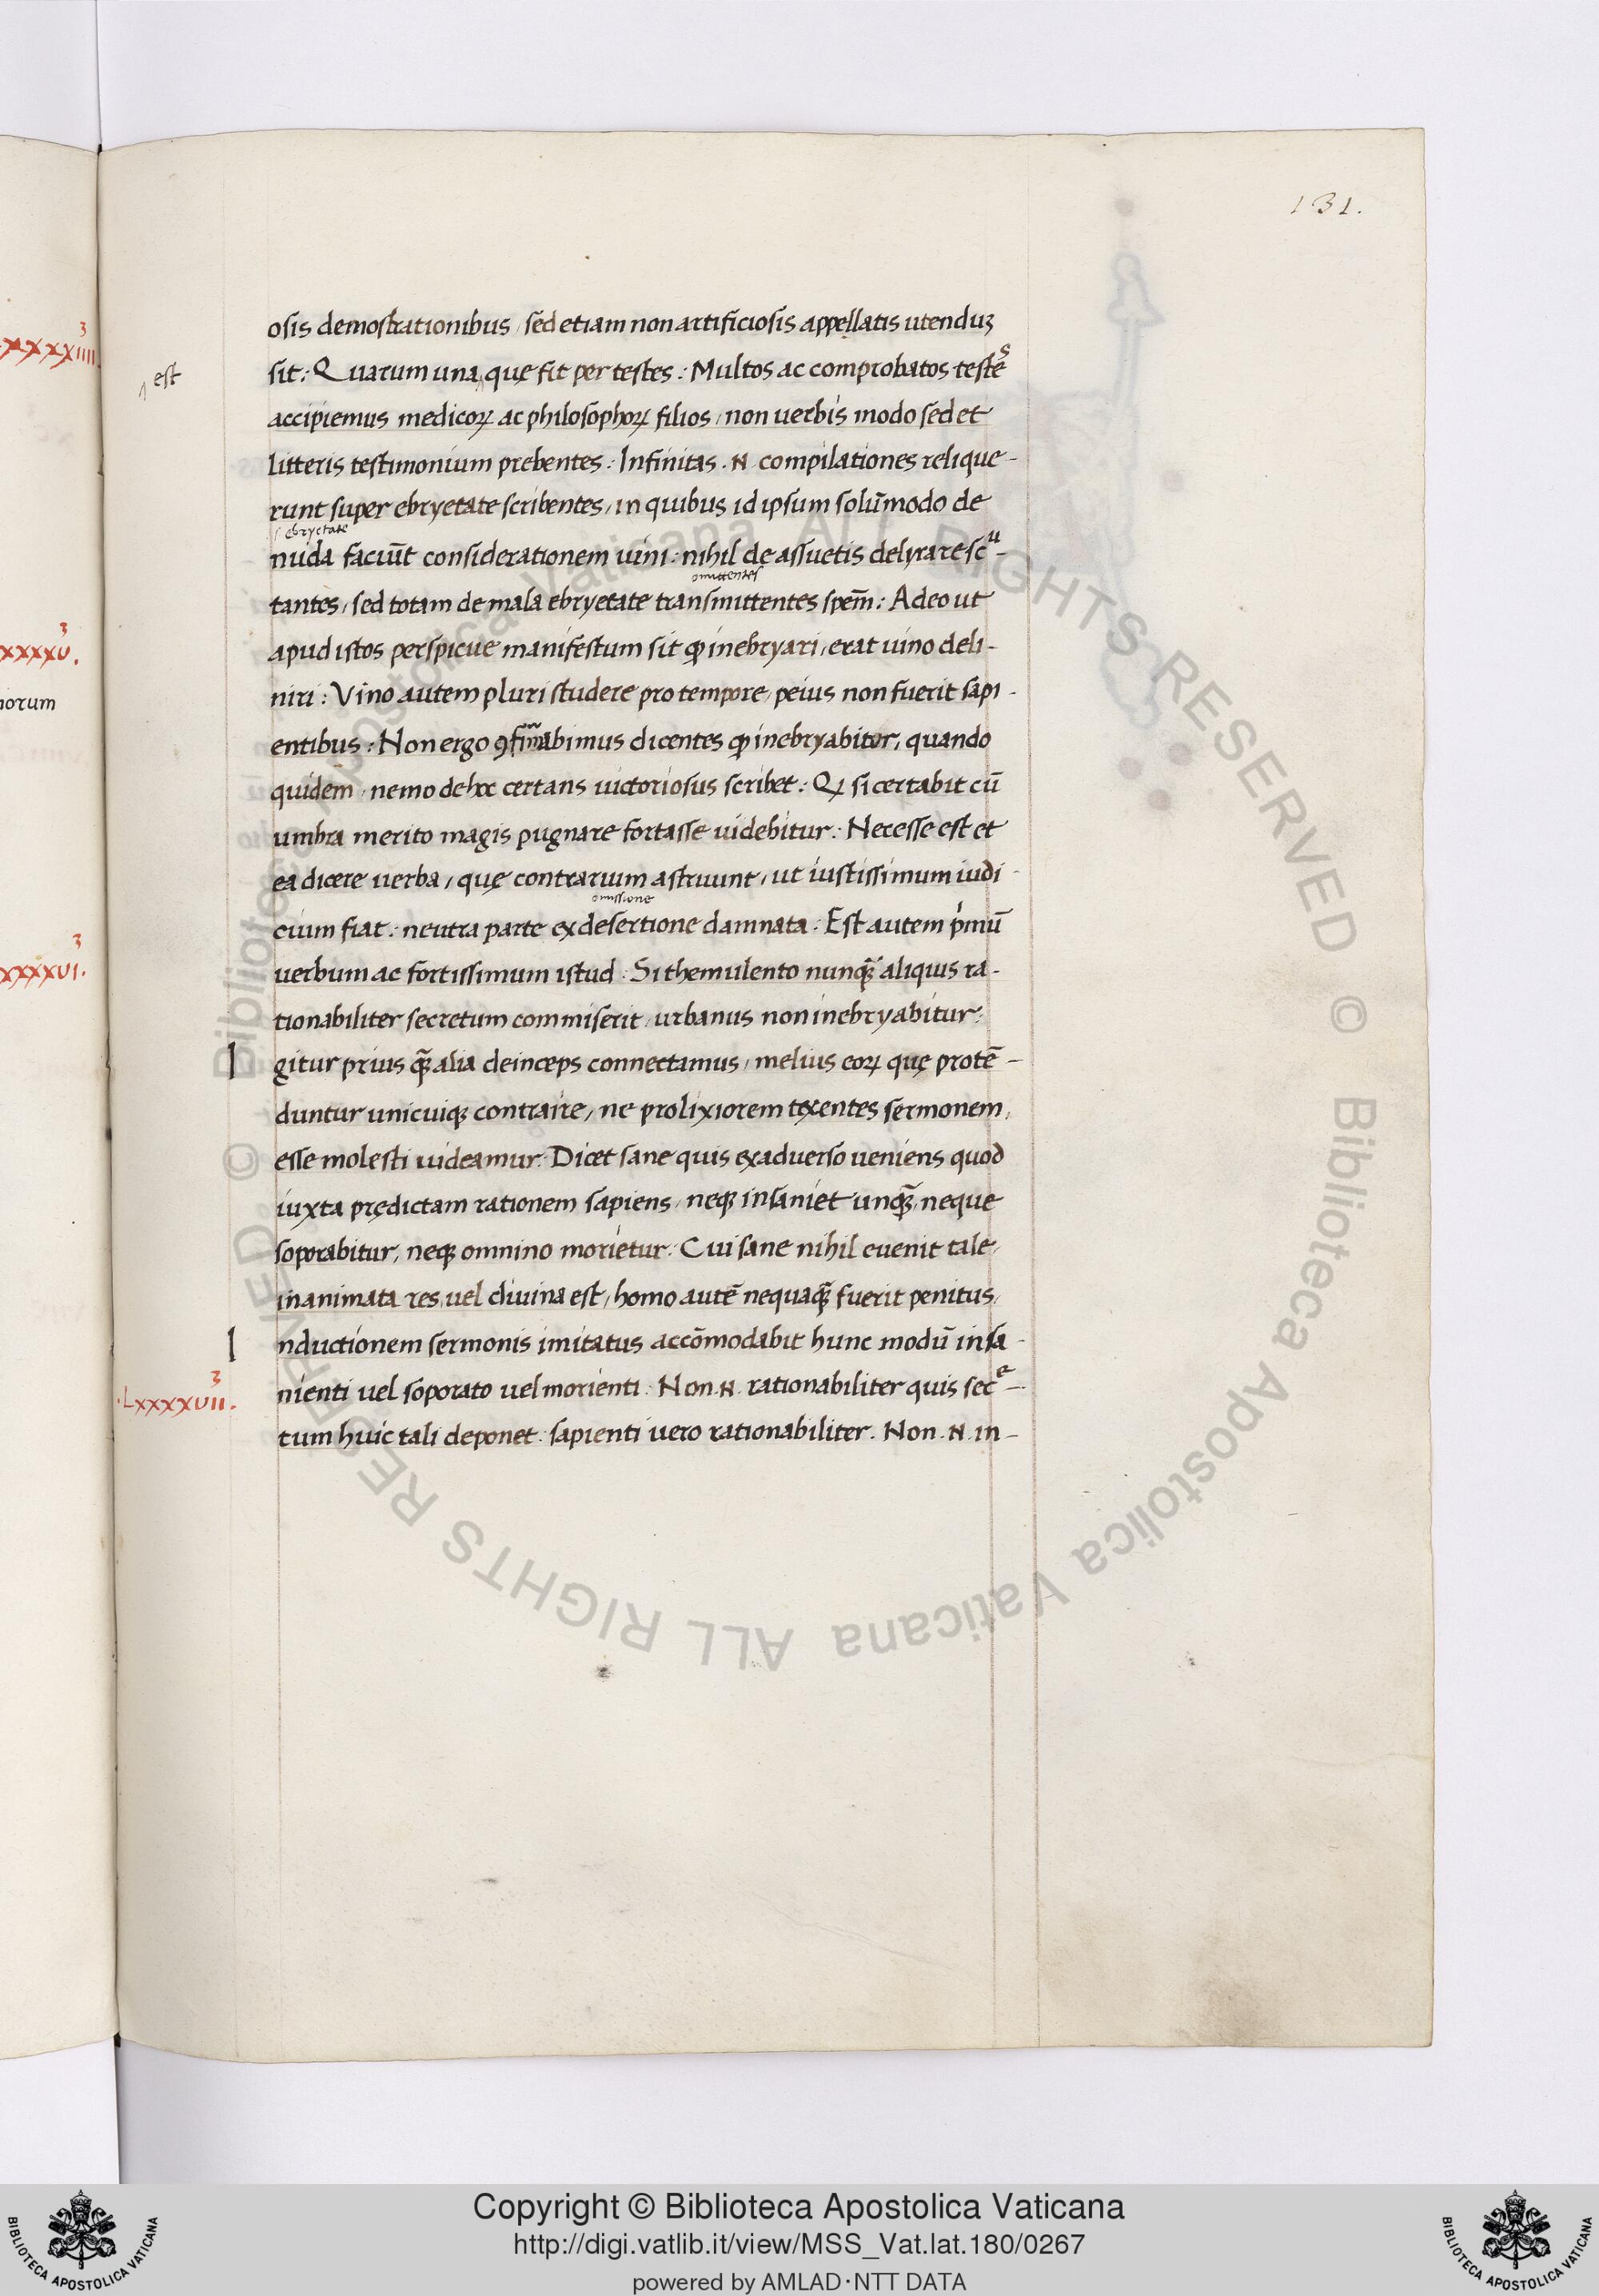 131.
osis demostrationibus, sed etiam non artificiosis appellatis utenduʒ
sit: Quarum una que fit per testes: Multos ac comprobatos testes
est
accipiemus medicoꝝ ac philosophoꝝ filios, non uerbis modo sed et
litteris testimonium prebentes: Infinitas .N. compilationes relique-
runt super ebryetate scribentes, in quibus id ipsum solūmodo de
ebryetate
nuda faciūt considerationem uini: nihil de assuetis delyrare scu-
omittentes
tantes, sed totam de mala ebryetate transmittentes spem̄: Adeo ut
apud istos perspicue manifestum sit ꝙ inebryari, erat uino deli-
niri: Vino autem pluri studere pro tempore, peius non fuerit sapi-
entibus: Non ergo abimus dicentes ꝙ inebryabitur, quando
quidem, nemo de hoc certans uictoriosus scribet: Qꝫ si certabit cū
umbra merito magis pugnare fortasse uidebitur: Necesse est et
ea dicere uerba, que contrarium astruunt, ut iustissimum iudi-
omissione
cium fiat: neutra parte ex desertione damnata: Est autem pⁱmū
uerbum ac fortissimum istud: Si themulento nunqꝫ̄ aliquis ra-
tionabiliter secretum commiserit, urbanus non inebryabitur:
I gitur prius qꝫ̄ alia deinceps connectamus, melius eoꝝ que protē-
duntur unicuiqꝫ contraire, ne prolixiorem texentes sermonem,
esse molesti uideamur: Dicet sane quis ex aduerso ueniens quod
iuxta prędictam rationem sapiens, neqꝫ insaniet unqꝫ̄, neque
soporabitur, neqꝫ omnino morietur: Cui sane nihil euenit tale,
inanimata res, uel diuina est, homo autē nequaqꝫ̄ fuerit penitus,
I nductionem sermonis imitatus accōmodabit hunc modū insa-
.Lxxxxvii.
nienti uel soporato uel morienti: Non .N. rationabiliter quis secᵉ-
tum huic tali deponet: sapienti uero rationabiliter. Non .N. in-
xxxxiiii
xxxxv.
norum
xxxxvi.
Copyright © Biblioteca Apostolica Vaticana
http://digi.vatlib.it/view/MSS_Vat.lat.180/0267
powered by AMLAD·NTT DATA
BIBLIOTECA APOSTOLICA VATICANA
BIBLIOTECA APOSTOLICA VATICANA
© Biblioteca Apostolica Vaticana ALL RIGHTS RESERVED © Biblioteca Apostolica Vaticana ALL RIGHTS RESERVED